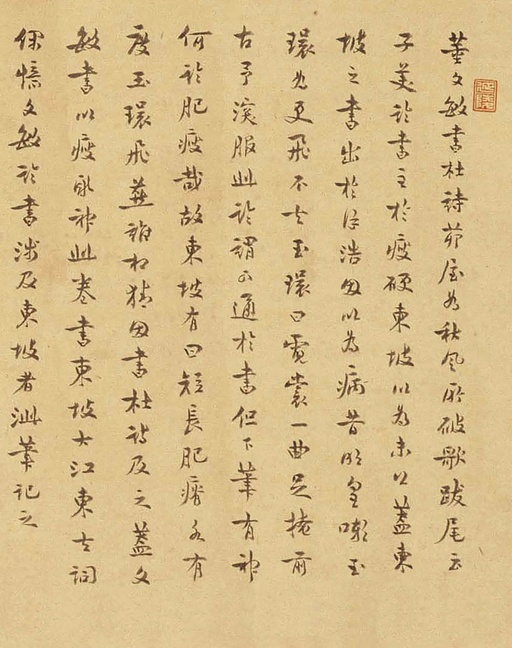 董文敏書杜詩茅屋為秋風所破歌跋尾云
子美於書主於瘦硬東坡以為未公蓋東
坡之書出於徐浩每以為病昔明皇嘲玉
環為更飛不去玉環曰霓裳一曲足掩前
古予深服此於謂不通於書但下筆有神
何論肥瘦哉故東坡有曰短長肥瘠各有
度玉環飛燕誰相猜因書杜詩及之蓋文
敏書以瘦取神此卷書東坡大江東去詞
偶憶文敏於書涉及東坡者泚筆記之